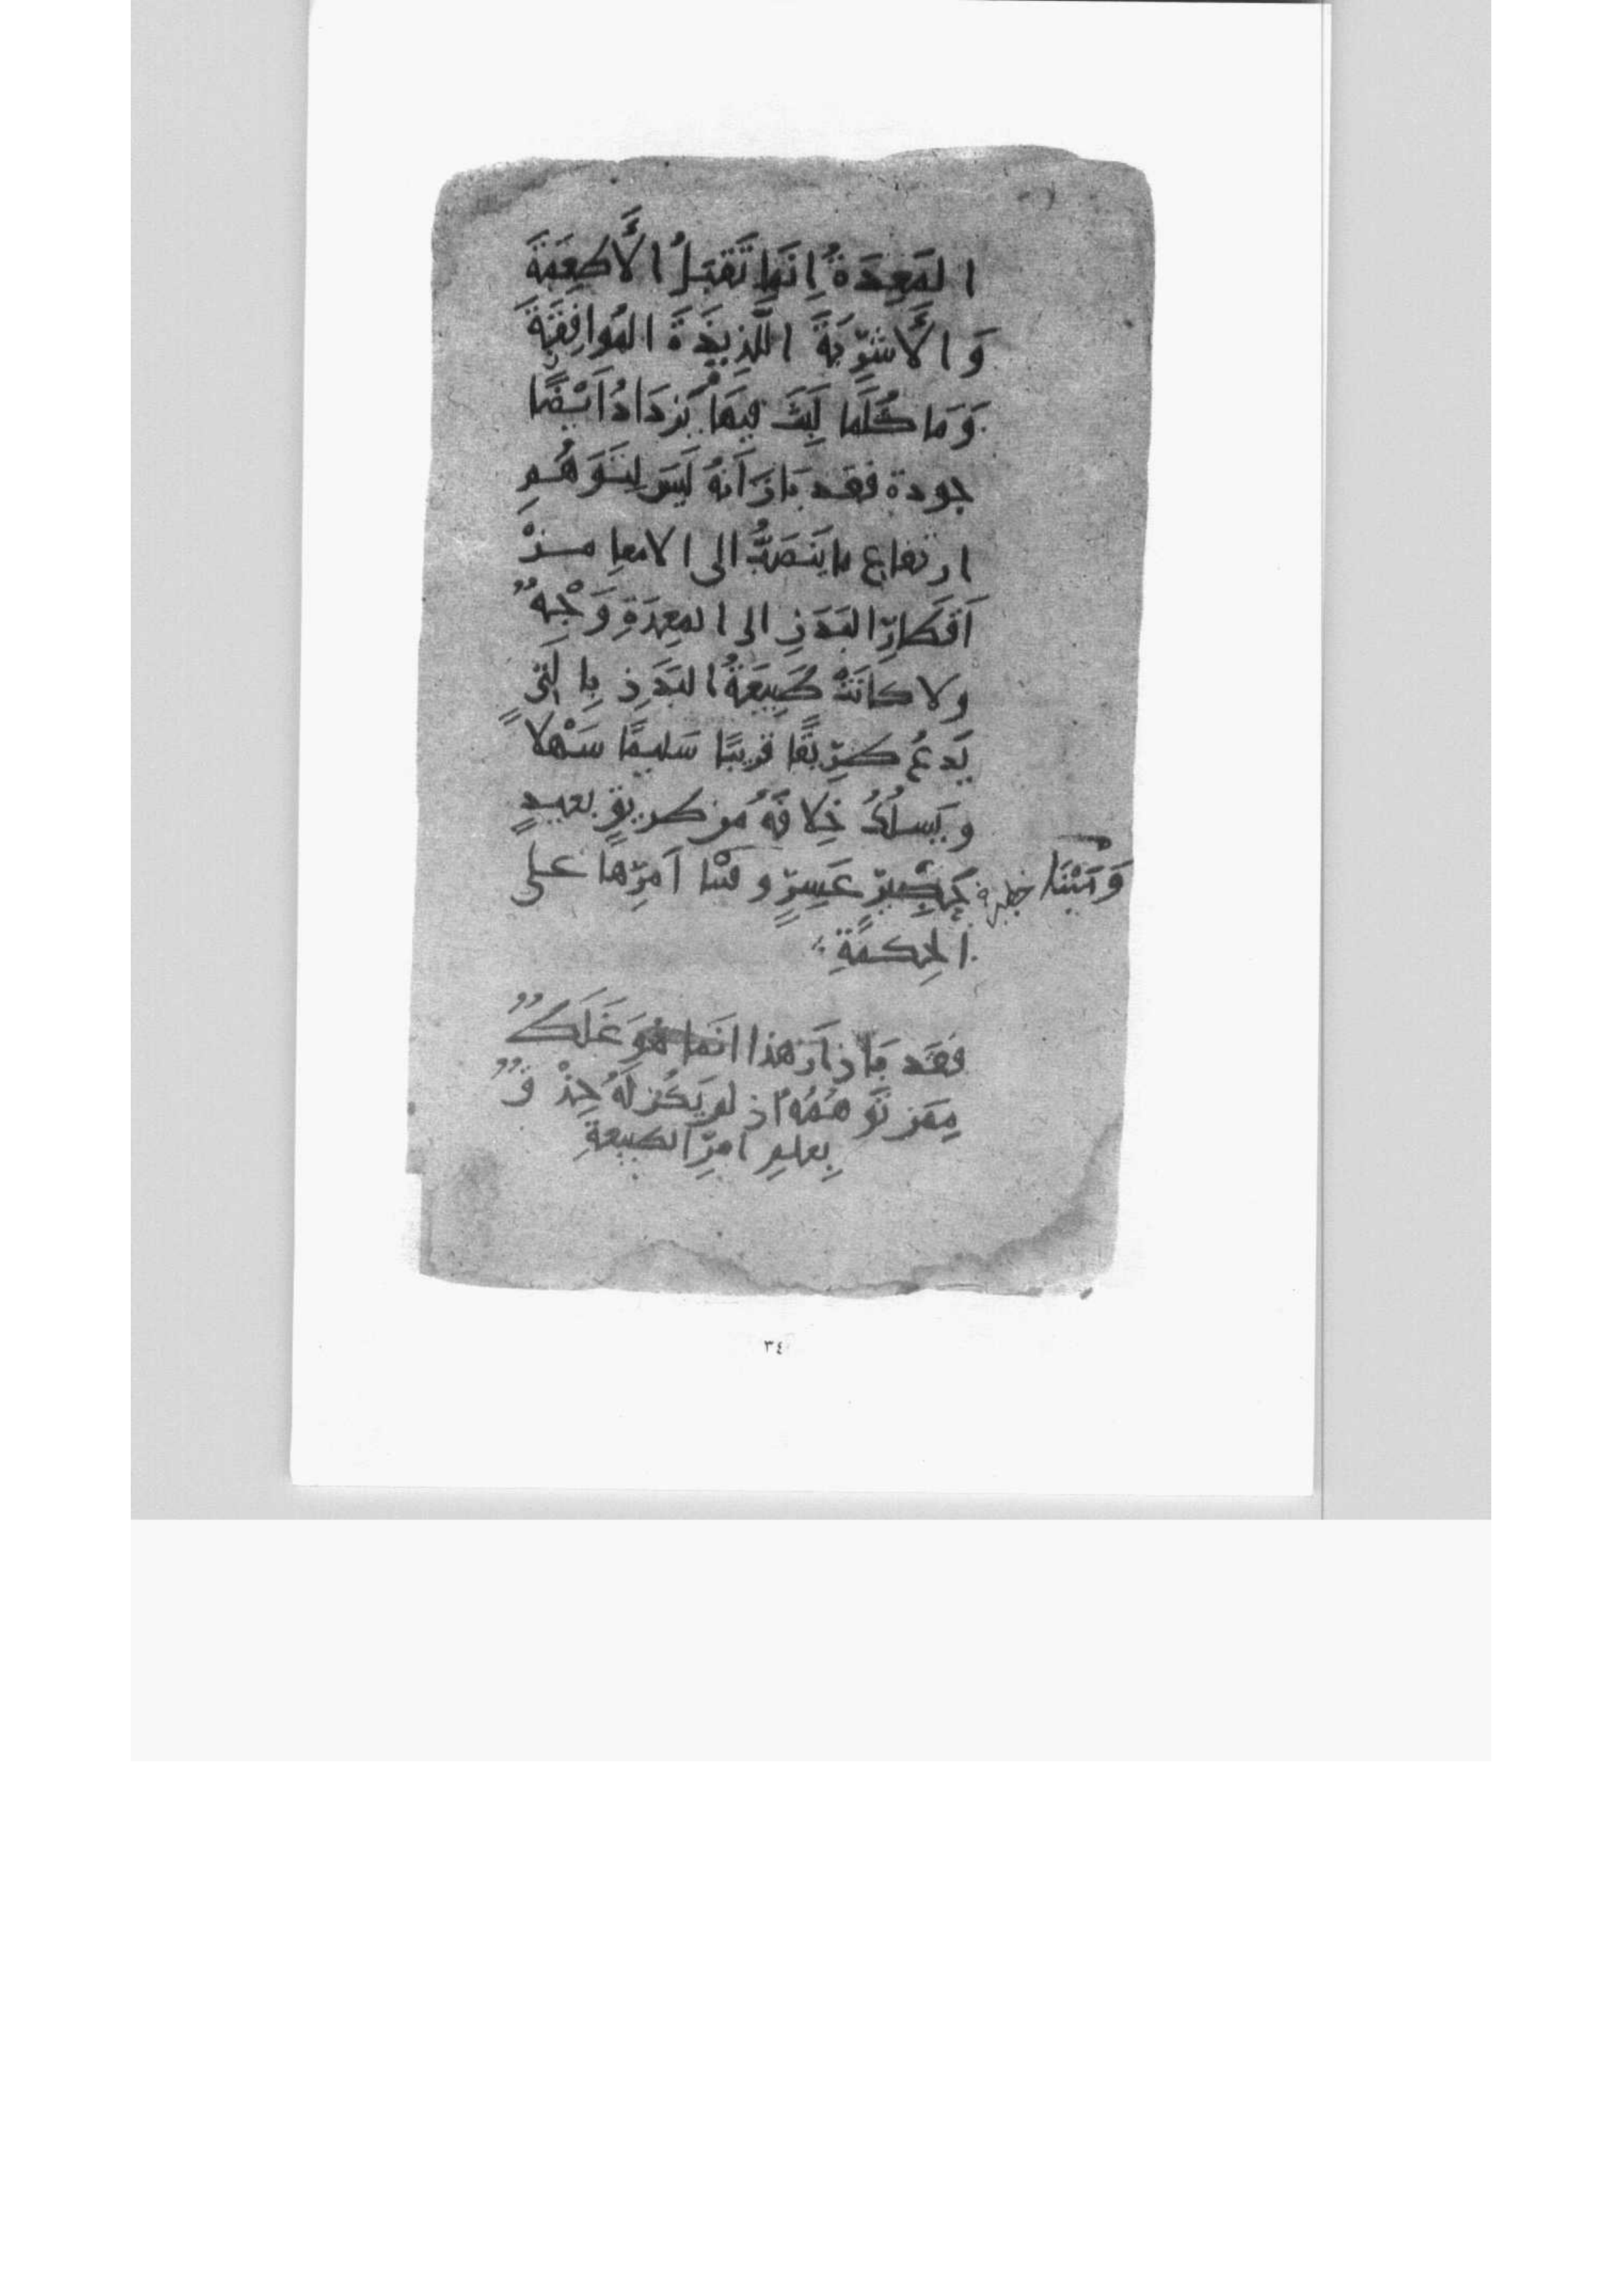 المَعِدَةُ اِنَّما تَقبَلُ الأَطعِمَةَ
وَالأَشرِبَةَ اللَّذِيذَةَ المُوافِقَةَ
وَمَا كُلَّمَا لَبِثَ فِيهَا يَزدَادُ اَيْضًا
جودة فقد بَانَ اَنهُ لَيسَ لِتَوَهُّمِ
ارتفاع ما يَنصَبُّ الى الامعاِ مـنْ
اَقطَارِ البَدَنِ الى المعِدَةِ وَجْهٌ
ولا كانَتْ طَبِيعَةُ البَدَنِ بِالَّتى
يَدعُ طرِيقًا قريبًا سَليمًا سَهْلا
ويَسلُكُ خِلافَهُ من طريقٍ بعيدٍ
خَطِرٍ عَسِرٍ و اَمرِها على
وَبَيْنَا
الحِكمَةِ
فَقَد بَانَ اَنّ هذا انّما هُوَ غَلَطٌ
مِمَن تَوَهَّمَهُ اذ لم يَكُن لَهُ حِذْقٌ
بِعلمِ امرِ الطبيعةِ
٣٤